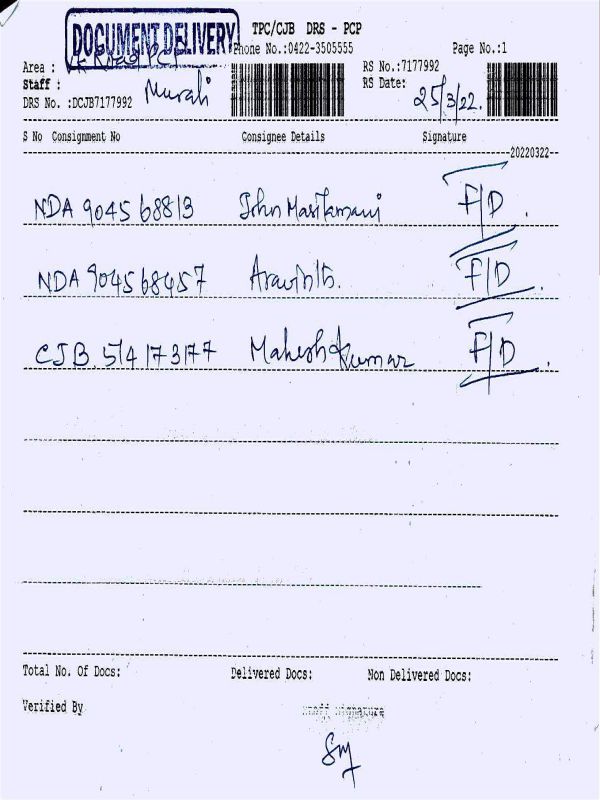 DOCUMENT DELIVERY
TPC/CJB DRS - PCP
Phone No.:0422-3505555
Page No.:1
Area :
Staff : Murali
DRS No. :DCJB7177992
RS No.:7177992
RS Date: 25/3/22.
S No Consignment No Consignee Details Signature
20220322
NDA 904568813 John Masilamani F/D.
NDA 904568457 Aravinth. F/D.
CJB 514173177 Mahesh Kumar F/D.
Total No. Of Docs: Delivered Docs: Non Delivered Docs:
Verified By
Staff Signature